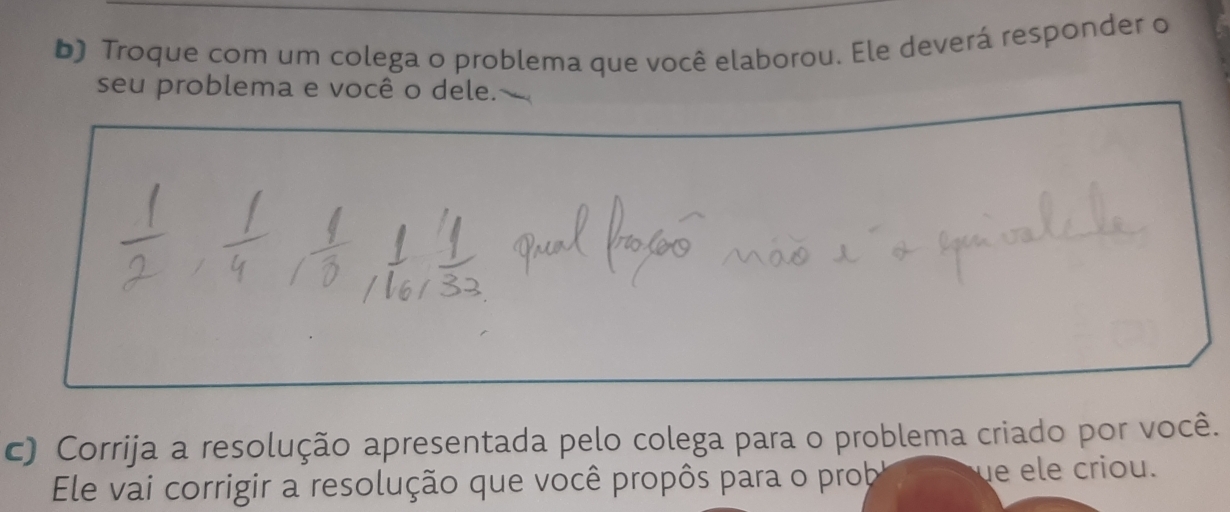 b) Troque com um colega o problema que você elaborou. Ele deverá responder o
seu problema e você o dele.
1/2, 1/4, 1/8, 1/16, 1/33 qual fração não é a equivalente
c) Corrija a resolução apresentada pelo colega para o problema criado por você.
Ele vai corrigir a resolução que você propôs para o ele criou.